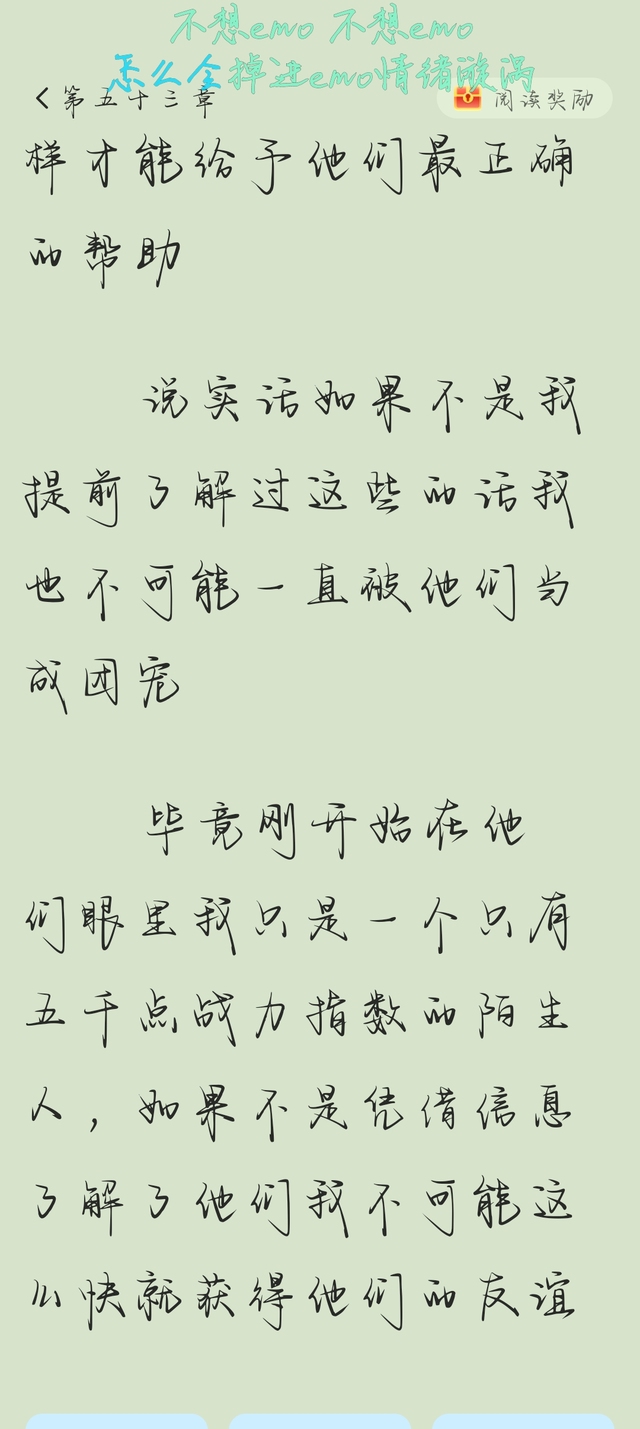 不想emo 不想emo
怎么全掉进emo情绪酸涡
第五十三章
阅读奖励
样才能给予他们最正确
的帮助
说实话如果不是我
提前了解过这些的话我
也不可能一直被他们当
成团宠
毕竟刚开始在他
们眼里我只是一个只有
五千点战力指数的陌生
人，如果不是凭借信息
了解了他们我不可能这
么快就获得他们的友谊